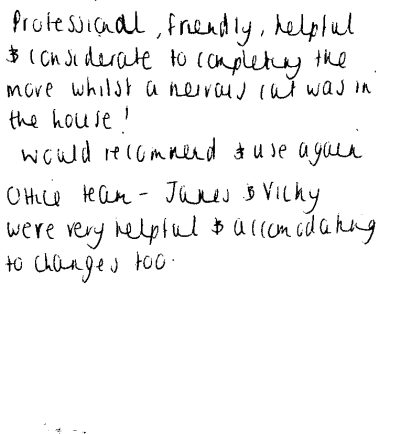 Professional, friendly, helpful
& considerate to completing the
move whilst a nervous cat was in
the house!
would recommend & use again
Office team - James & Vicky
were very helpful & accomodating
to changes too.